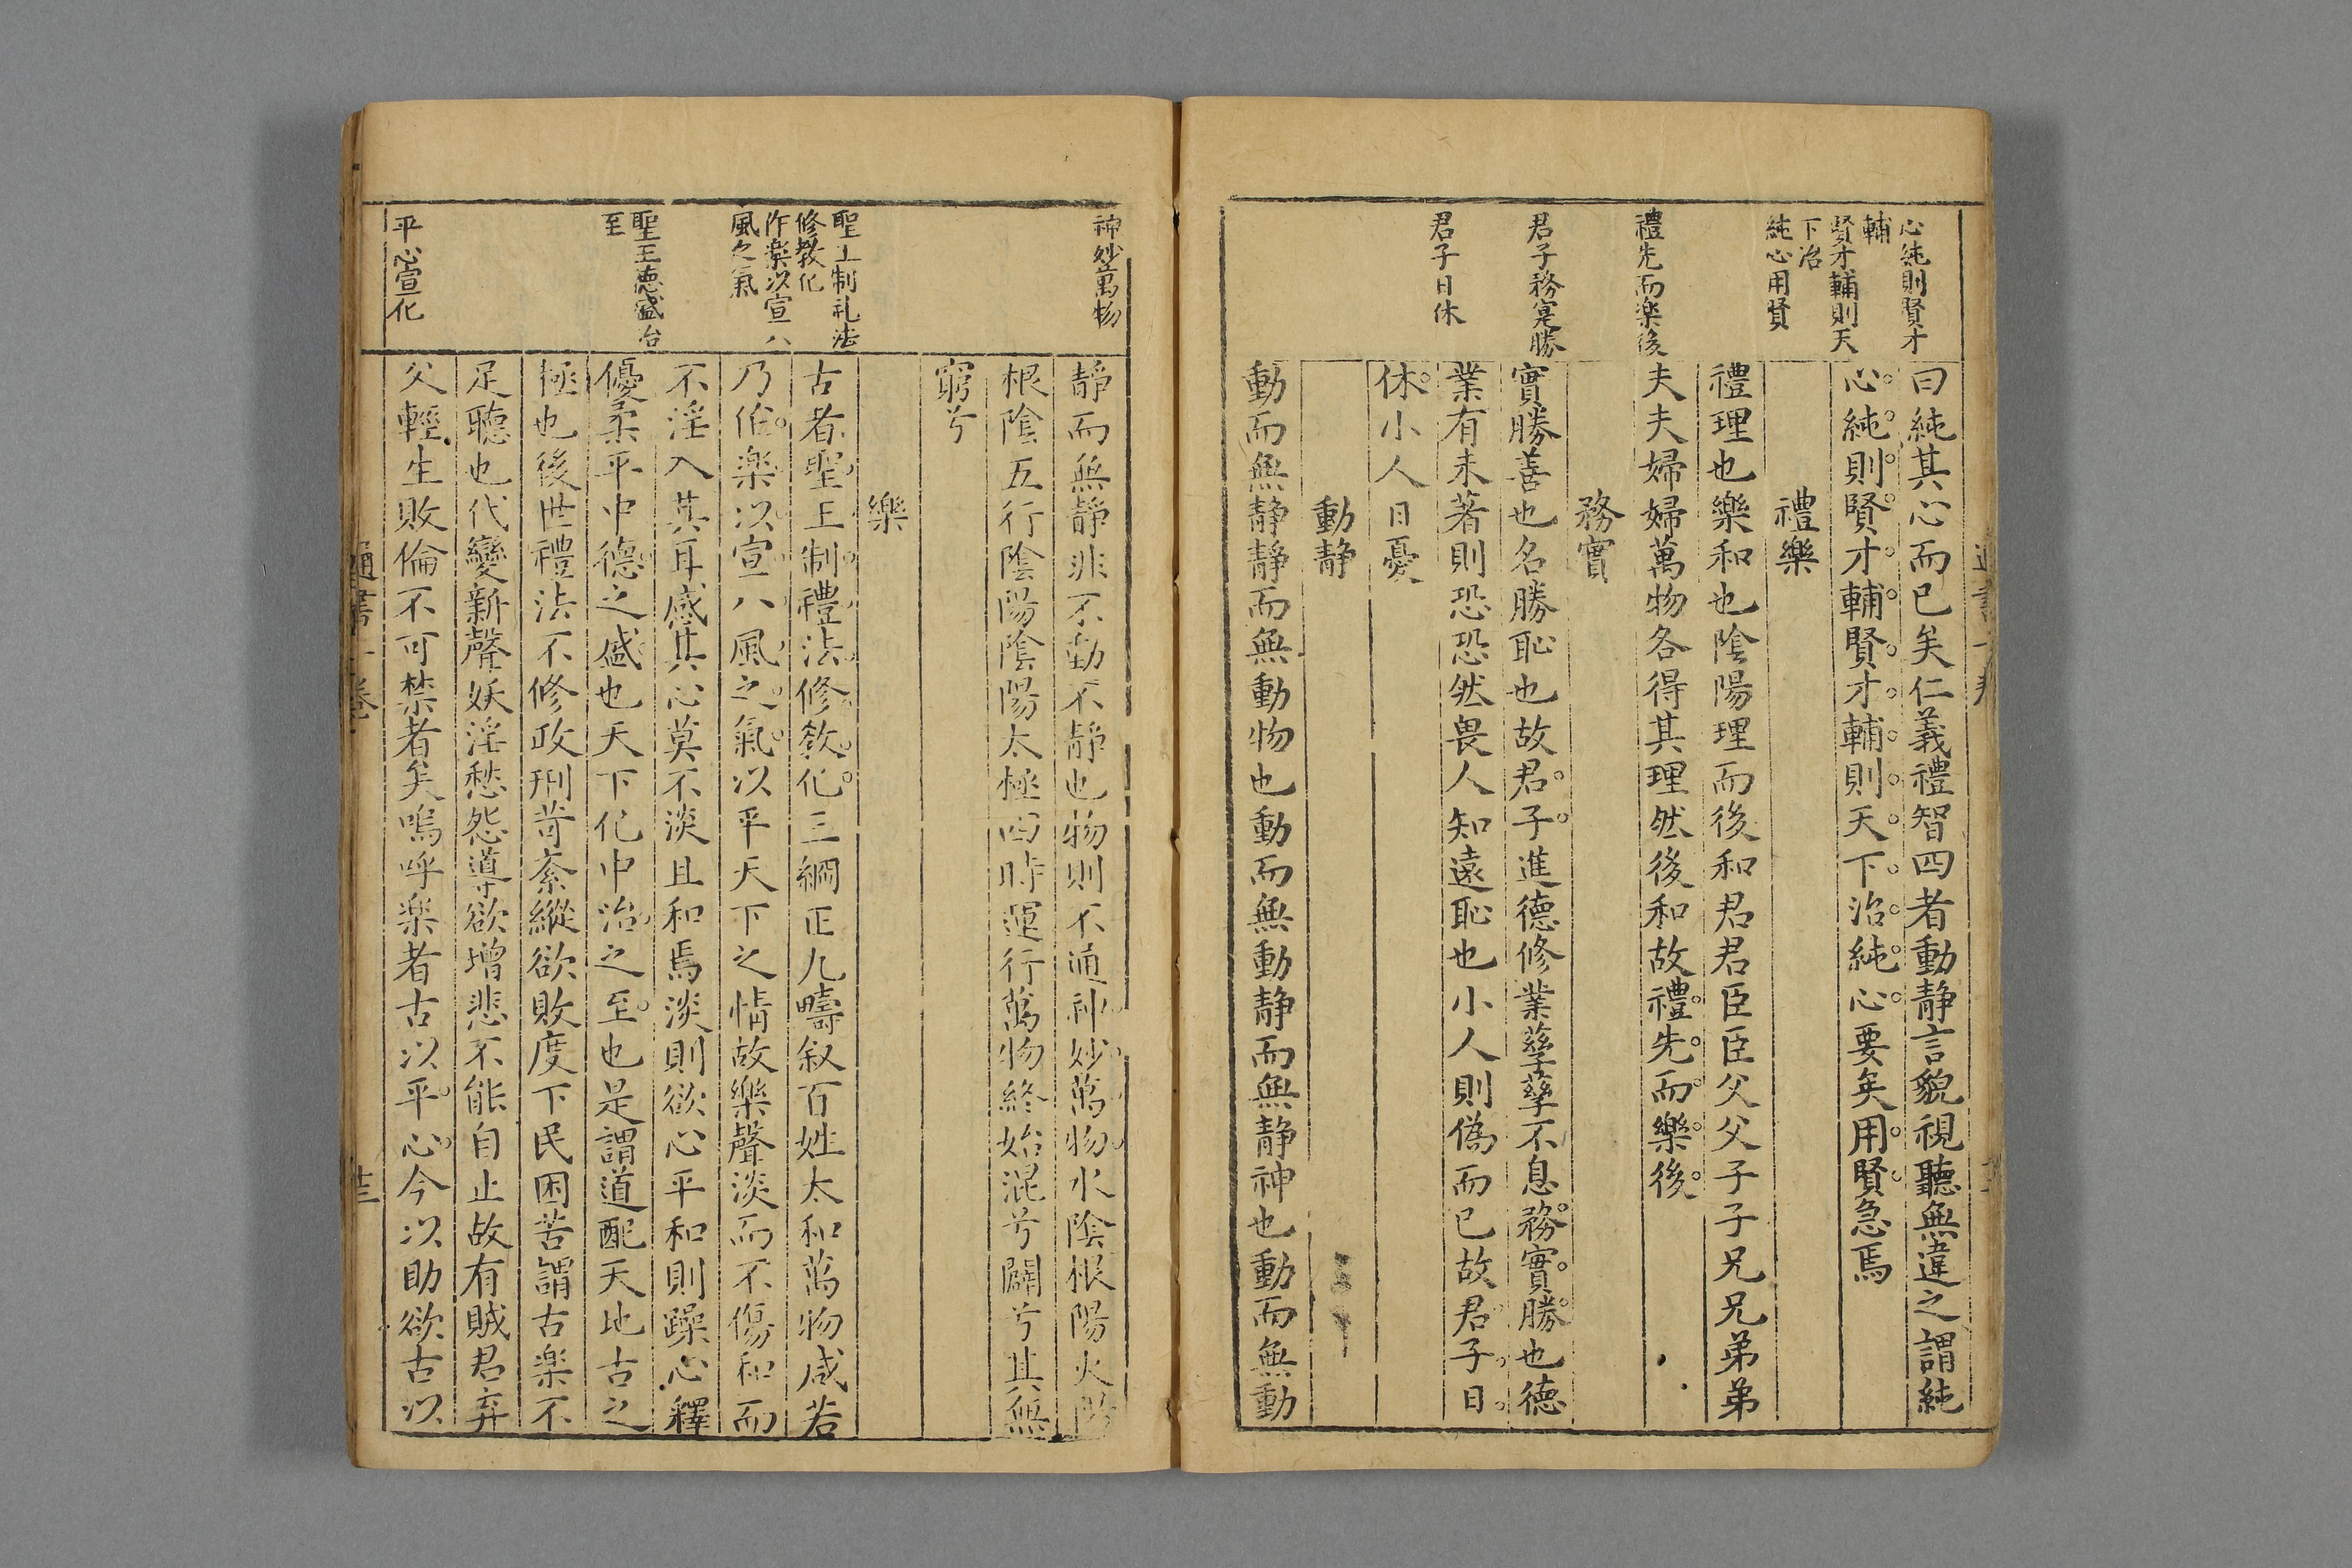 心純則賢才
輔
賢才輔則天
下治
純心用賢
禮先而楽後
君子務寔勝
君子日休
曰純其心而已矣仁義禮智四者動静言貌視聽無違之謂純
心純則賢才輔賢才輔則天下治純心要矣用賢急焉
禮樂
禮理也樂和也陰陽理而後和君君臣臣父父子子兄兄弟弟
夫夫婦婦萬物各得其理然後和故禮先而樂後
務實
實勝善也名勝恥也故君子進德修業孳孳不息務實勝也德
業有未著則恐恐然畏人知遠恥也小人則偽而已故君子日
休小人日憂
動静
動而無静静而無動物也動而無動静而無静神也動而無動
神妙萬物
聖王制礼法
修教化
作楽以宣八
風之氣
聖王德盛治
至
平心宣化
静而無静非不動不静也物則不通神妙萬物水陰根陽火陽
根陰五行陰陽陰陽太極四時運行萬物終始混兮闢兮其無
窮兮
樂
古者聖王制禮法修教化三綱正九疇叙百姓太和萬物咸若
乃作楽以宣八風之氣以平天下之情故樂聲淡而不傷和而
不淫入其耳感其心莫不淡且和焉淡則欲心平和則躁心釋
優柔平中德之盛也天下化中治之至也是謂道配天地古之
極也後世禮法不修政刑苛紊縱欲敗度下民困苦謂古楽不
足聽也代變新聲妖淫愁怨導欲增悲不能自止故有賊君弃
父輕生敗倫不可禁者矣嗚呼楽者古以平心今以助欲古以
通書一卷